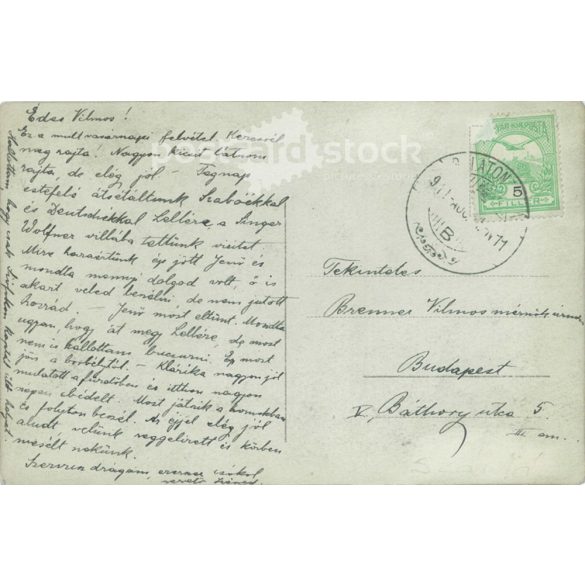 Édes Vilmos!
Ez a mult vasárnapi felvétel. Keressél
meg rajta! Nagyon kicsit látszom
rajta, de elég jól – Tegnap
estefelé átsétáltunk Szabóékkal
és Deutschékkal Lellére, a Singer
Wolfner villába tettünk visitet
Mire hazaértünk épp jött Jenő és
mondta mennyi dolgod volt, ő is
akart veled beszélni, de nem jutott
hozzád – Jenő most eltünt. Mondta
ugyan, hogy át megy Lellére, de most
nem is hallottam bucsuzni. Ép most
jön a
mulatott a fürdőben és itthon nagyon
szépen ebédelt. Most játszik a homokban
és folyton beszél. Az éjjel elég jól
aludt velünk reggelizett és közben
mesélt nekünk.
Szervusz drágám, ezerszer csókol
szerető
Hallottam, hogy csak
postcard stock
MAGYAR KIR. POSTA
5
FILLÉR
BALATON
911 AUG
Tekintetes
Brenner Vilmos mérnök urnak
Budapest
V. Báthory utca 5.
III. em.